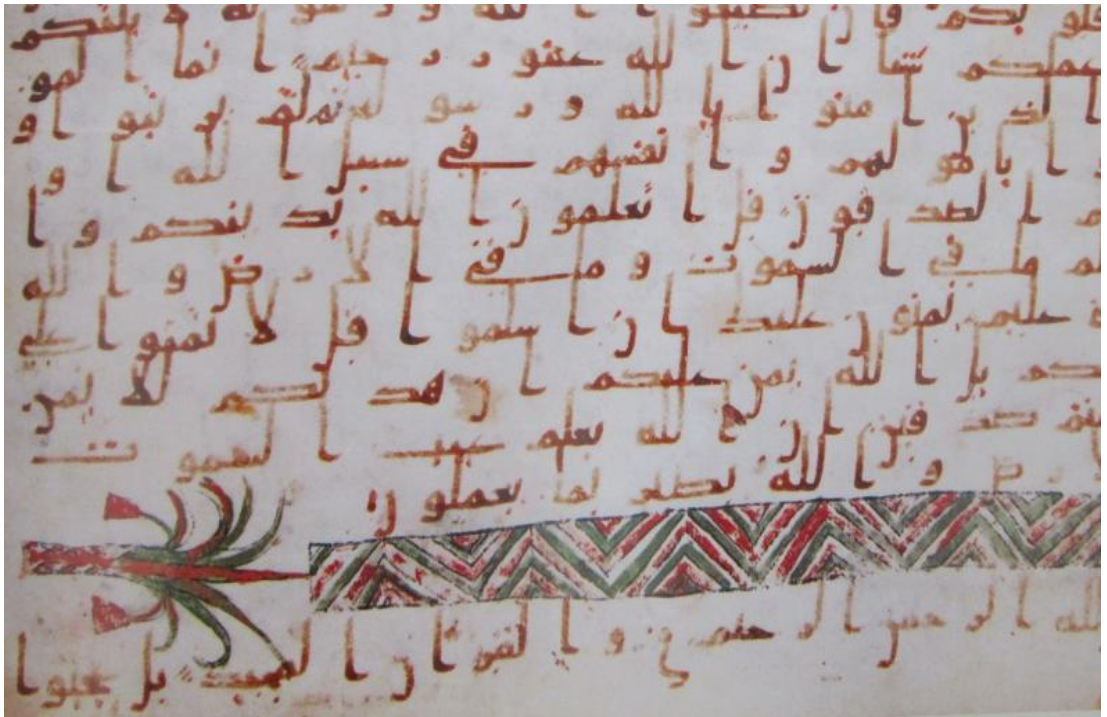 قلوبكم وان تطيعوا الله ورسوله لا يلتكم
عملكم شيا ان الله غفور رحيم انما المو
الذين امنوا بالله ورسوله ثم لم يرتبوا و
بامولهم وانفسهم في سبيل الله او
هم الصدقون قل اتعلمون الله بدينكم وا
يعلم ما في السموت وما في الارض والله
عليم يمنون عليك ان اسلموا قل لا تمنوا علي
بل الله يمن عليكم ان هديكم للايمن
صدقين ان الله يعلم غيب السموت
والله بصير بما يعملون
الله الرحمن الرحيم ق والقران المجيد بل عجبوا